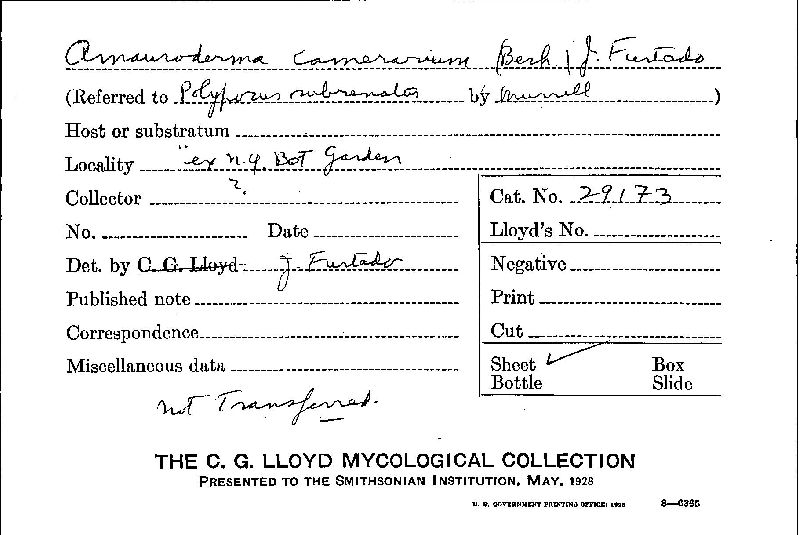 Amauroderma camerarium (Berk) J. Furtado
(Referred to Polyporus subrenatus by Murrill)
Host or substratum
Locality "ex N.Y. Bot Garden
Collector ?
No. Date
Det. by C. G. Lloyd J Furtado
Published note
Correspondence
Miscellaneous data
Cat. No. 29173
Lloyd's No.
Negative
Print
Cut
Sheet ✓ Box
Bottle Slide
not Transferred.
THE C. G. LLOYD MYCOLOGICAL COLLECTION
PRESENTED TO THE SMITHSONIAN INSTITUTION, MAY, 1928
U. S. GOVERNMENT PRINTING OFFICE: 1928